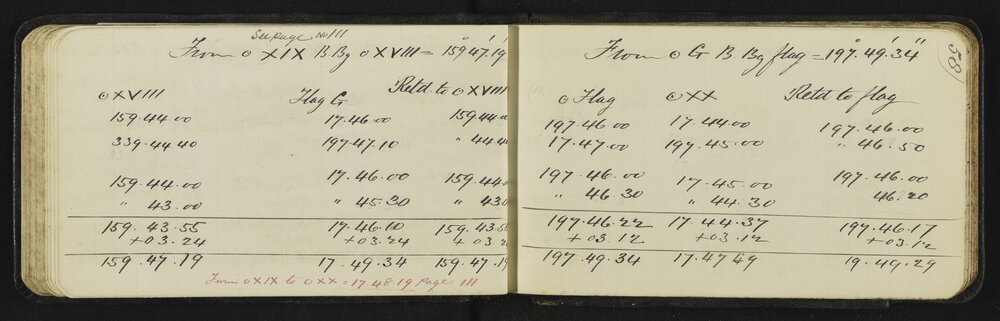 See page No 111
From ⊙ XIX B. Bg ⊙ XVIII = 159°.47'.19"
⊙ XVIII Flag G Retd to ⊙ XVIII
159.44.00 17.46.00 159.44.0
339.44.40 197.47.10 " 44.4
159.44.00 17.46.00 159.44.0
" 43.00 " 45.30 " 43.0
159.43.55 17.46.10 159.43.5
+03.24 +03.24 +03.2
159.47.19 17.49.34 159.47.19
From ⊙ XIX to ⊙ XX = 17.48.19 Page 111
58
From ⊙ G B Bg flag = 197°.49'.34"
⊙ Flag ⊙ XX Retd to flag
197.46.00 17.44.00 197.46.00
17.47.00 197.45.00 " 46.50
197.46.00 17.45.00 197.46.00
" 46.30 " 44.30 46.20
197.46.22 17.44.37 197.46.17
+03.12 +03.12 +03.12
197.49.34 17.47.49 19.49.29